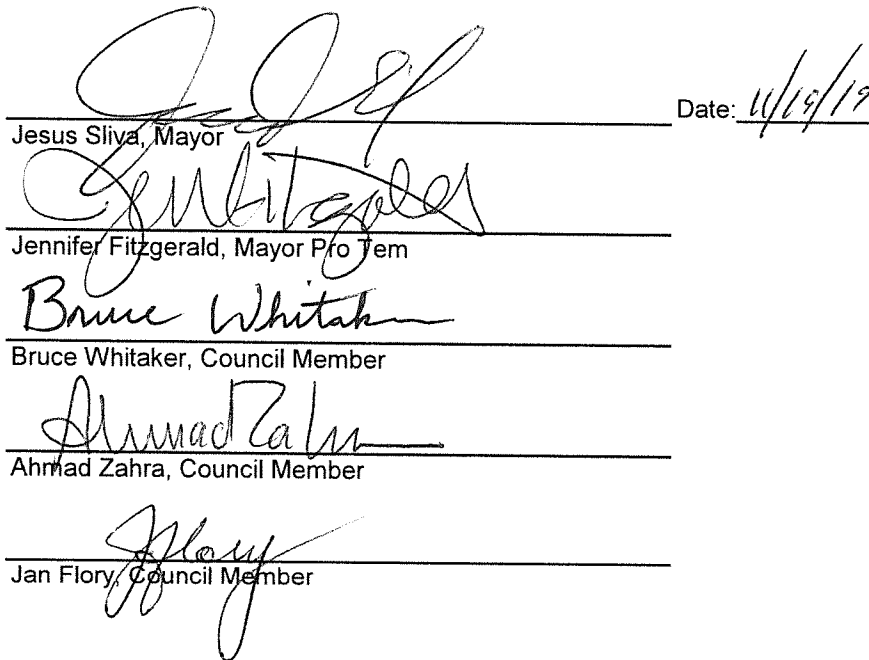 Date: 11/19/19
Jesus Sliva, Mayor
Jennifer Fitzgerald, Mayor Pro Tem
Bruce Whitaker
Bruce Whitaker, Council Member
Ahmad Zahra
Ahmad Zahra, Council Member
JFlory
Jan Flory, Council Member